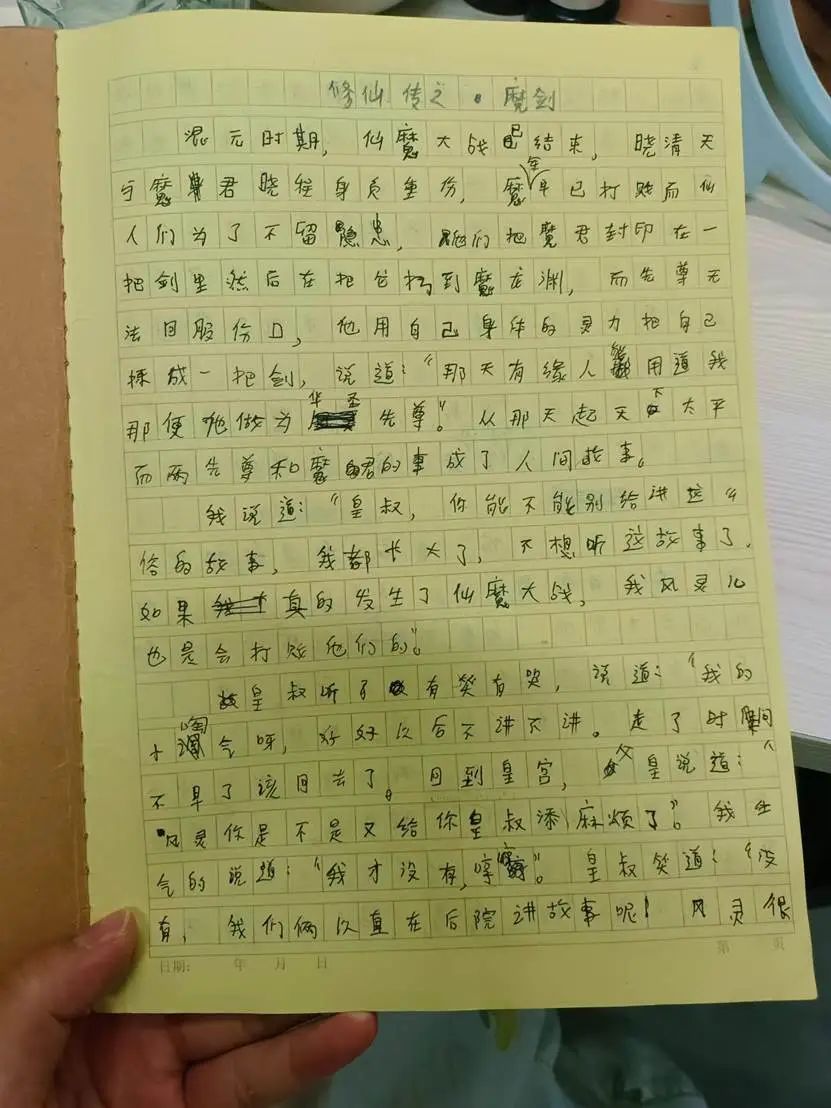 修仙传之·魔剑
混元时期，仙魔大战已结来，晓清天
与魔君晓程身负重伤，魔军已打败而仙
人们为了不留隐患，他们把魔君封印在一
把剑里然后在把它扔到魔龙渊，而先尊无
法回服伤口，他用自己身体的灵力把自己
揉成一把剑，说道：“那天有缘人能用道我
那便他做为华圣先尊”。从那天起天下太平
而两先尊和魔君的事成了人间故事。
我说道：“皇叔，你能不能别给讲这
俗的故事，我都长大了，不想听这故事了，
如果真的发生了仙魔大战，我风灵儿
也是会打败他们的”。
皇叔听了有笑有哭，说道：“我的
小淘气呀，好好以后不讲不讲。走了时间
不早了该回去了。回到皇宫，父皇说道：“
“风灵你是不是又给你皇叔添麻烦了”。我生
气的说道：“我才没有，哼”。皇叔笑道：“没
有，我们俩以直在后院讲故事呢！风灵很
日期： 年 月 日
第 页